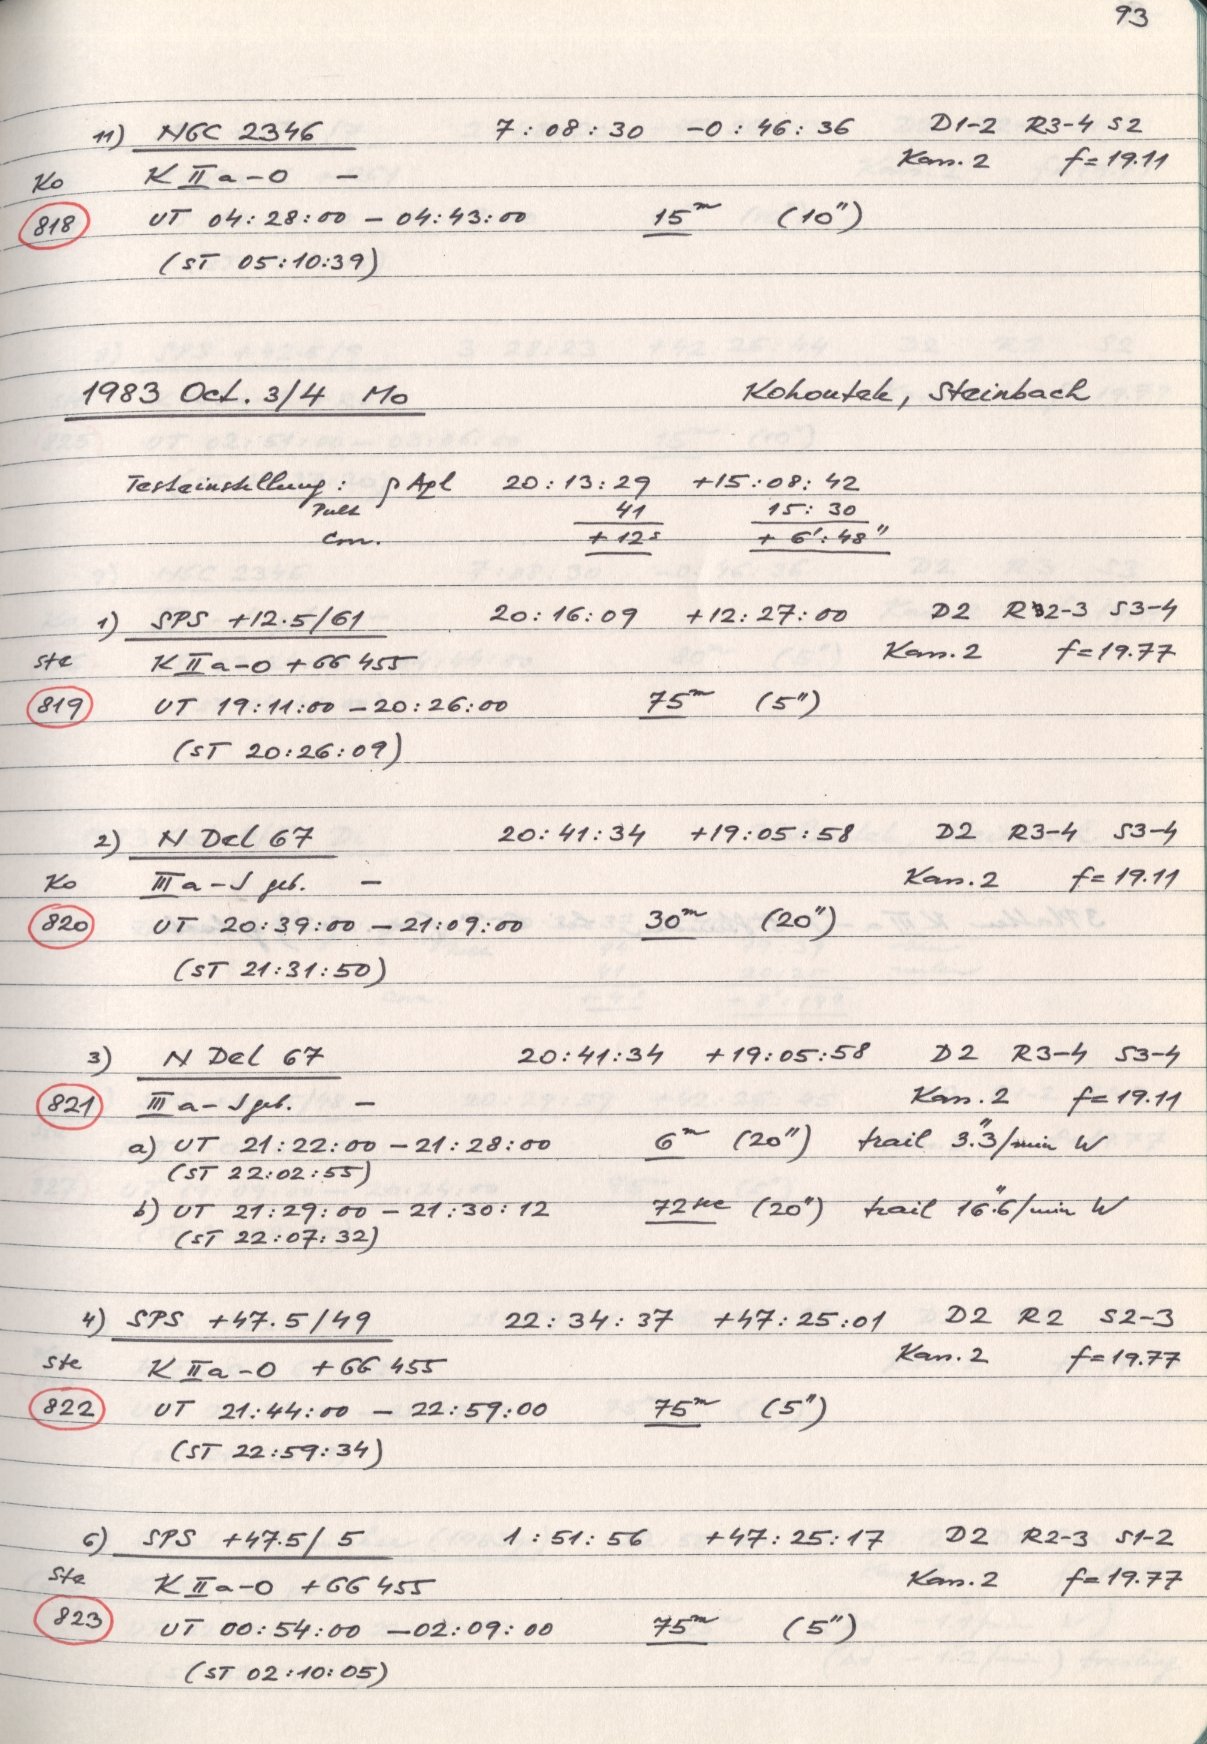 93
11) NGC 2346 7:08:30 -0:46:36 D1-2 R3-4 S2
Kam.2 f=19.11
Ko K II a-O -
818 UT 04:28:00 - 04:43:00 15m (10")
(ST 05:10:39)
1983 Oct. 3/4 Mo Kohoutek, Steinbach
Testeinstellung: ρ Aql 20:13:29 +15:08:42
Pult 41 15:30
Corr. +12s +6':48"
1) SPS +12.5/61 20:16:09 +12:27:00 D2 R2-3 S3-4
Ste K II a-O +GG 455 Kam.2 f=19.77
819 UT 19:11:00 - 20:26:00 75m (5")
(ST 20:26:09)
2) N Del 67 20:41:34 +19:05:58 D2 R3-4 S3-4
Ko III a-J geb. - Kam.2 f=19.11
820 UT 20:39:00 - 21:09:00 30m (20")
(ST 21:31:50)
3) N Del 67 20:41:34 +19:05:58 D2 R3-4 S3-4
821 III a-J geb. - Kam.2 f=19.11
a) UT 21:22:00 - 21:28:00 6m (20") trail 3."3/min W
(ST 22:02:55)
b) UT 21:29:00 - 21:30:12 72sec (20") trail 16."6/min W
(ST 22:07:32)
4) SPS +47.5/49 22:34:37 +47:25:01 D2 R2 S2-3
Ste K II a-O +GG 455 Kam.2 f=19.77
822 UT 21:44:00 - 22:59:00 75m (5")
(ST 22:59:34)
6) SPS +47.5/5 1:51:56 +47:25:17 D2 R2-3 S1-2
Ste K II a-O +GG 455 Kam.2 f=19.77
823 UT 00:54:00 - 02:09:00 75m (5")
(ST 02:10:05)